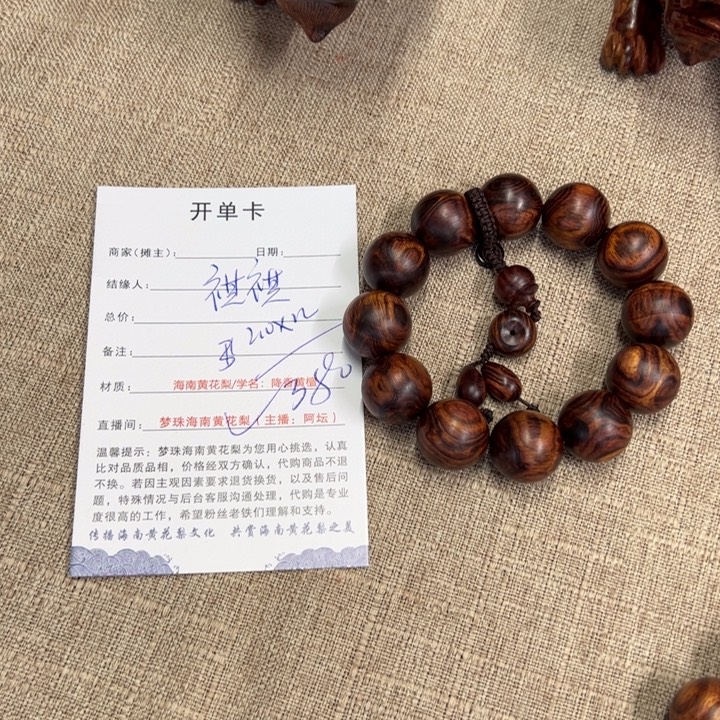 开单卡
商家(摊主): 日期:
结缘人: 祺祺
总价:
备注: 210×12
材质: 海南黄花梨/学名: 降香黄檀
3890
直播间: 梦珠海南黄花梨(主播: 阿坛)
温馨提示: 梦珠海南黄花梨为您用心挑选, 认真
比对品质品相, 价格经双方确认, 代购商品不退
不换。若因主观因素要求退货换货, 以及售后问
题, 特殊情况与后台客服沟通处理, 代购是专业
度很高的工作, 希望粉丝老铁们理解和支持。
传播海南黄花梨文化 共赏海南黄花梨之美